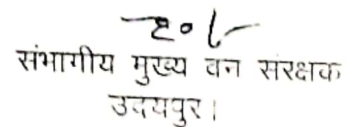 संभागीय मुख्य वन संरक्षक
उदयपुर।